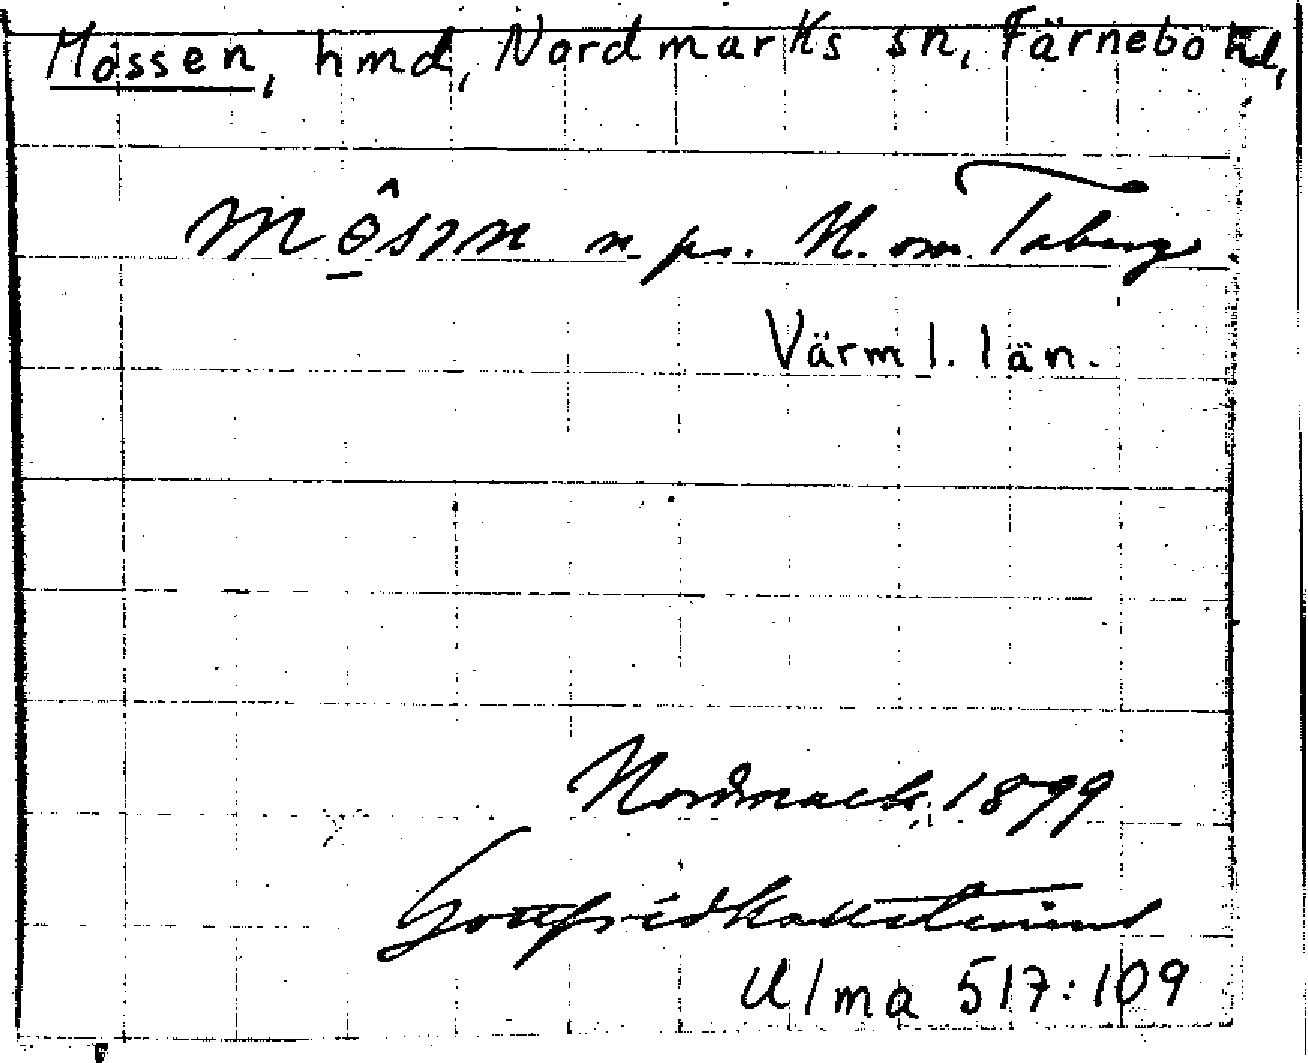 Mossen, hmd, Nordmarks sn, Färnebo hd,
mô̱sın n. ps. N. om. Taberg
Värml. län.
Nordmark, 1899
Gottfrid Kallstenius
Ulma 517:109